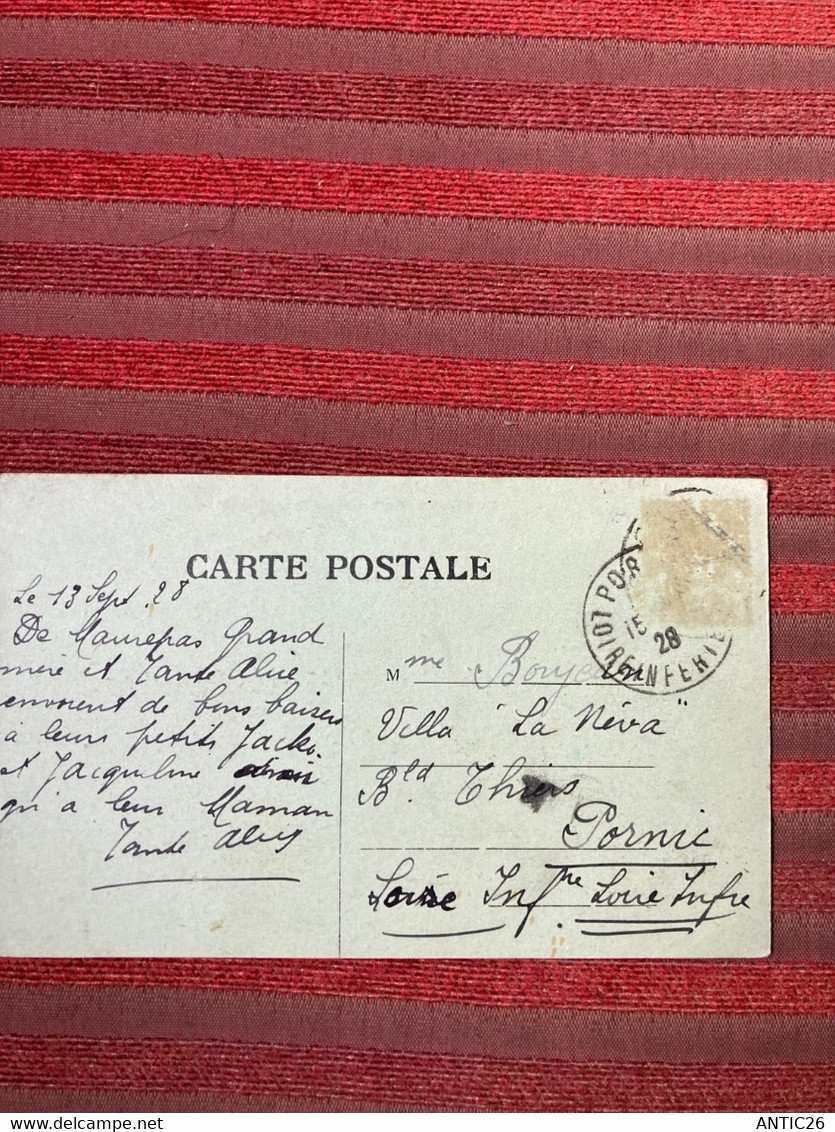 CARTE POSTALE
Le 13 Sept 28
De Maurepas Grand
mère et Tante Alice
envoient de bons baisers
à leurs petits Jacki
et Jacqueline ainsi
qu'à leur Maman
Tante Alice
Mme Boujeau
Villa "La Néva"
Bld. Thiers
Pornic
Loire Infre Loire Infre
POR
15
28
LOIRE INFERIE
ANTIC26